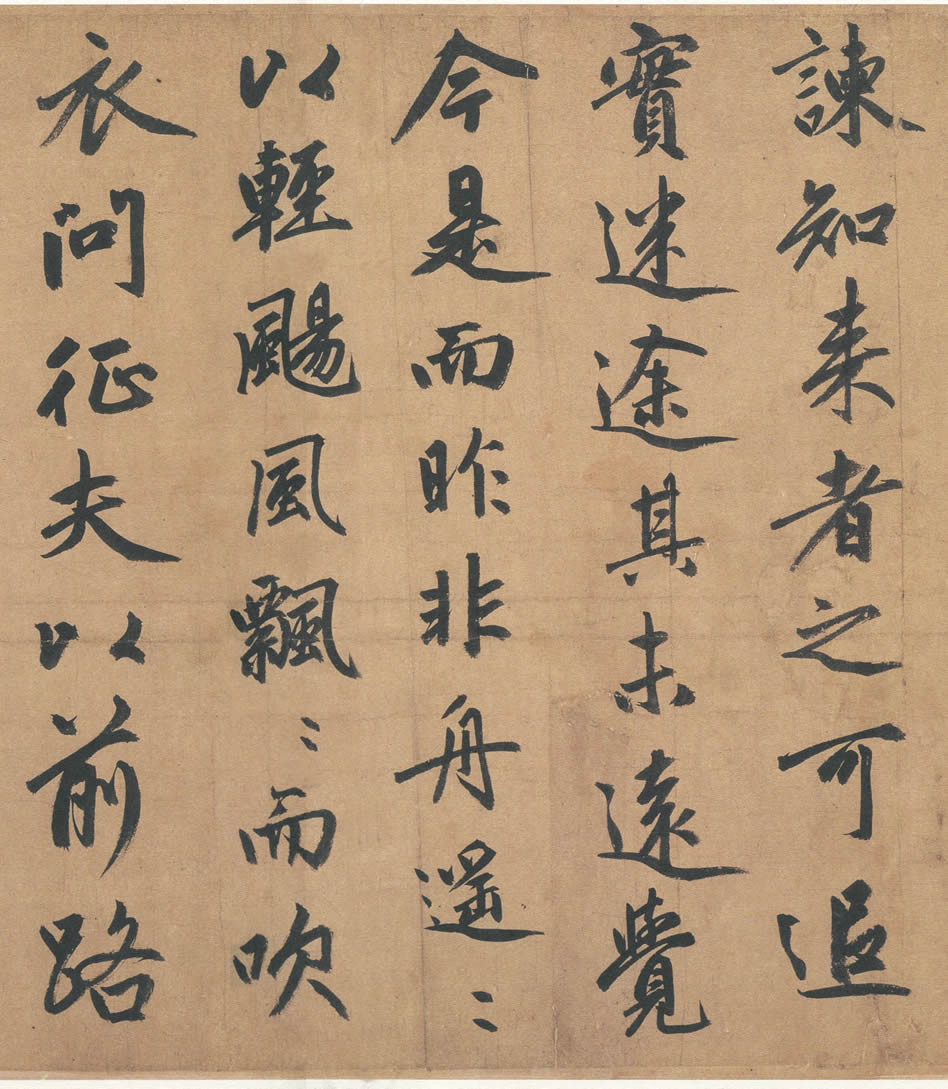 諫知来者之可追
實迷途其未遠覺
今是而昨非舟遥〻
以輕颺風飄〻而吹
衣問征夫以前路